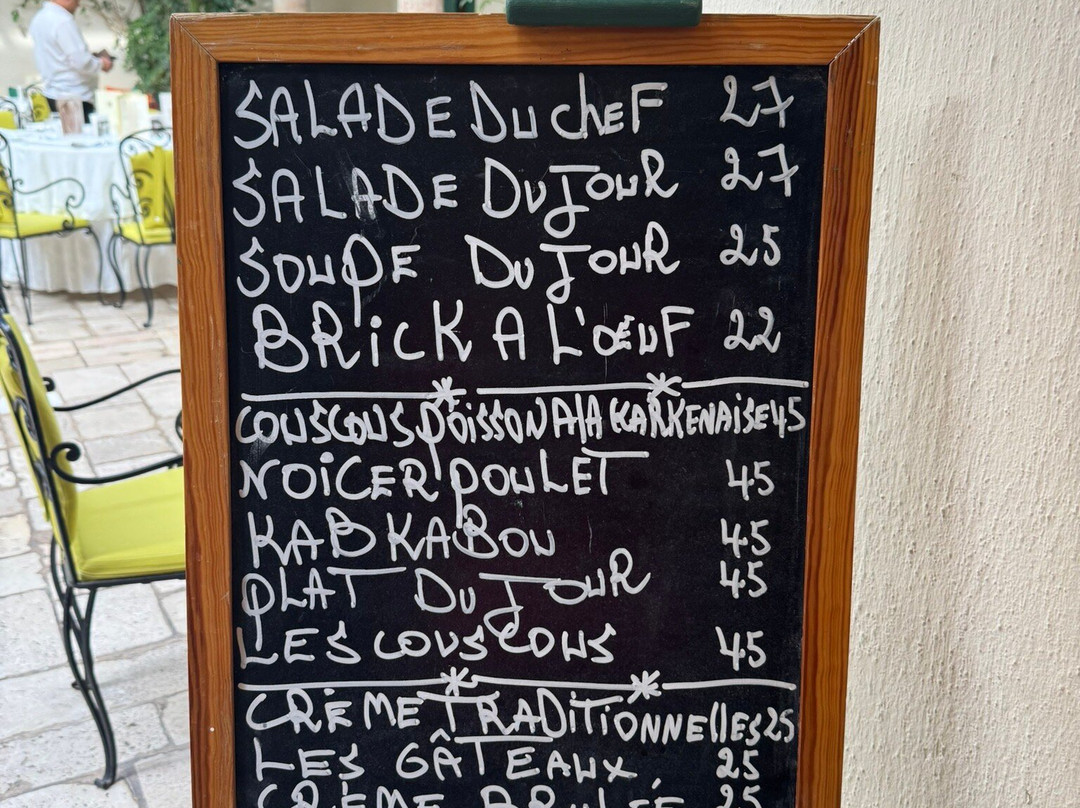 SALADE DU chEF 27
SALADE DU JOUR 27
SOUPE DU JOUR 25
BRiCK A L'ŒUF 22
COUSCOUS POiSSON A lA KARKENAiSE 45
NOiCER POULET 45
KABKABOU 45
PLAT DU JOUR 45
LES COUSCOUS 45
CRÈME TRADiTiONNEllES 25
LES GÂTEAUX 25
CRÈME BRULÉE 25